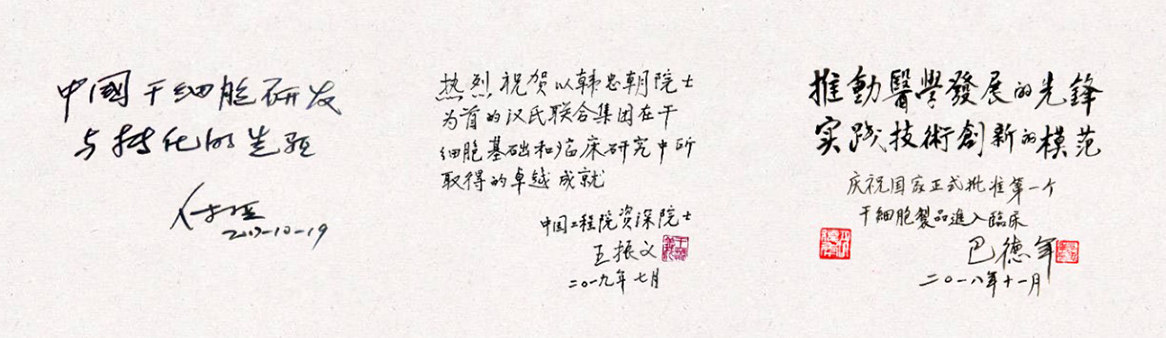 中國干细胞研发
与转化的先驱
热烈祝贺以韩忠朝院士
为首的汉氏联合集团在干
细胞基础和临床研究中所
取得的卓越成就
中国工程院资深院士
王振义
二〇一九年七月
推動醫學發展的先鋒
实践技術創新的模范
庆祝国家正式批准第一个
干細胞製品進入臨床
巴德年
二〇一八年十一月